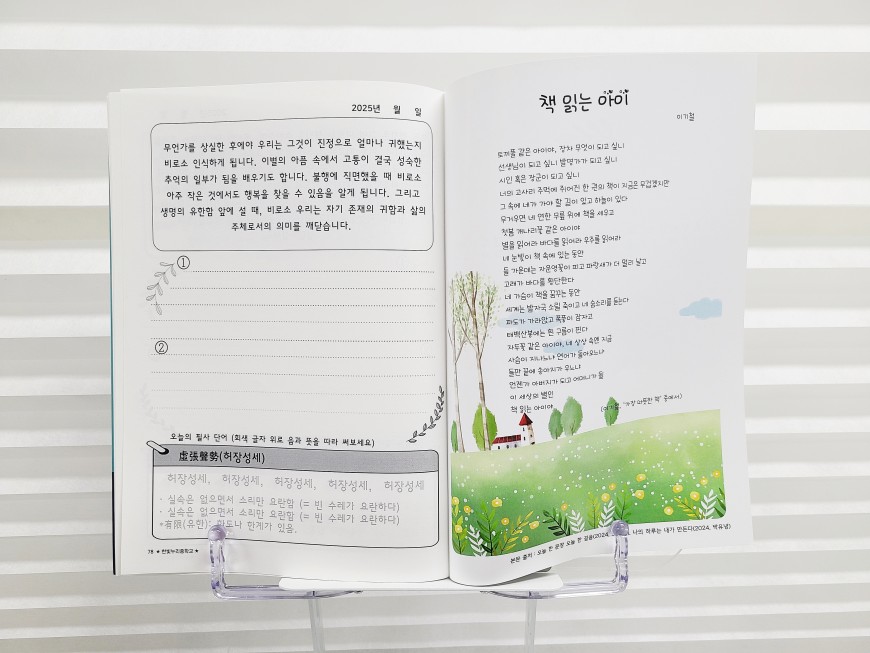 2025년 월 일
무언가를 상실한 후에야 우리는 그것이 진정으로 얼마나 귀했는지
비로소 인식하게 됩니다. 이별의 아픔 속에서 고통이 결국 성숙한
추억의 일부가 됨을 배우기도 합니다. 불행에 직면했을 때 비로소
아주 작은 것에서도 행복을 찾을 수 있음을 알게 됩니다. 그리고
생명의 유한함 앞에 설 때, 비로소 우리는 자기 존재의 귀함과 삶의
주체로서의 의미를 깨닫습니다.
①
②
오늘의 필사 단어 (회색 글자 위로 음과 뜻을 따라 써보세요)
虛張聲勢(허장성세)
허장성세, 허장성세, 허장성세, 허장성세, 허장성세
- 실속은 없으면서 소리만 요란함 (= 빈 수레가 요란하다)
- 실속은 없으면서 소리만 요란함 (= 빈 수레가 요란하다)
*有限(유한): 한도나 한계가 있음.
78 ★ 한빛누리중학교 ★
책 읽는 아이
이기철
토끼풀 같은 아이야, 장차 무엇이 되고 싶니
선생님이 되고 싶니 발명가가 되고 싶니
시인 혹은 장군이 되고 싶니
너의 고사리 주먹에 쥐어진 한 권의 책이 지금은 무겁겠지만
그 속에 네가 가야 할 길이 있고 하늘이 있다
무거우면 네 연한 무릎 위에 책을 세우고
첫봄 개나리꽃 같은 아이야
별을 읽어라 바다를 읽어라 우주를 읽어라
네 눈빛이 책 속에 있는 동안
들 가운데는 자운영꽃이 피고 파랑새가 더 멀리 날고
고래가 바다를 횡단한다
네 가슴이 책을 꿈꾸는 동안
세계는 발자국 소릴 죽이고 네 숨소리를 듣는다
파도가 가라앉고 폭풍이 잠자고
태백산부에는 흰 구름이 핀다
자두꽃 같은 아이야, 네 상상 속엔 지금
사슴이 지나느냐 연어가 돌아오느냐
들판 끝에 송아지가 우느냐
언젠가 아버지가 되고 어머니가 될
이 세상의 별인
책 읽는 아이야
(이기철, '가장 따뜻한 책' 중에서)
본문 출처 : 오늘 한 문장 오늘 한 걸음(2024, 나의 하루는 내가 만든다(2024, 박유녕)